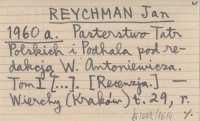 REYCHMAN Jan
1960 a. Pasterstwo Tatr
Polskich i Podhala pod re-
dakcją W. Antoniewicza.
Tom I [...]. [Recenzja.] —
Wierchy (Kraków) t. 29, r.